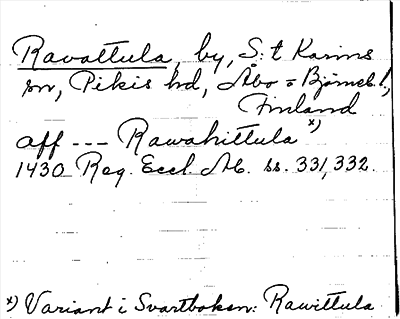 Ravattula, by, S:t Karins
sn, Pikis hd, Åbo = Björneb. l.,
Finland
aff --- Rawahittula x)
1430 Reg. Eccl. Ab. ss. 331, 332.
x) Variant i Svartboken: Rawittula